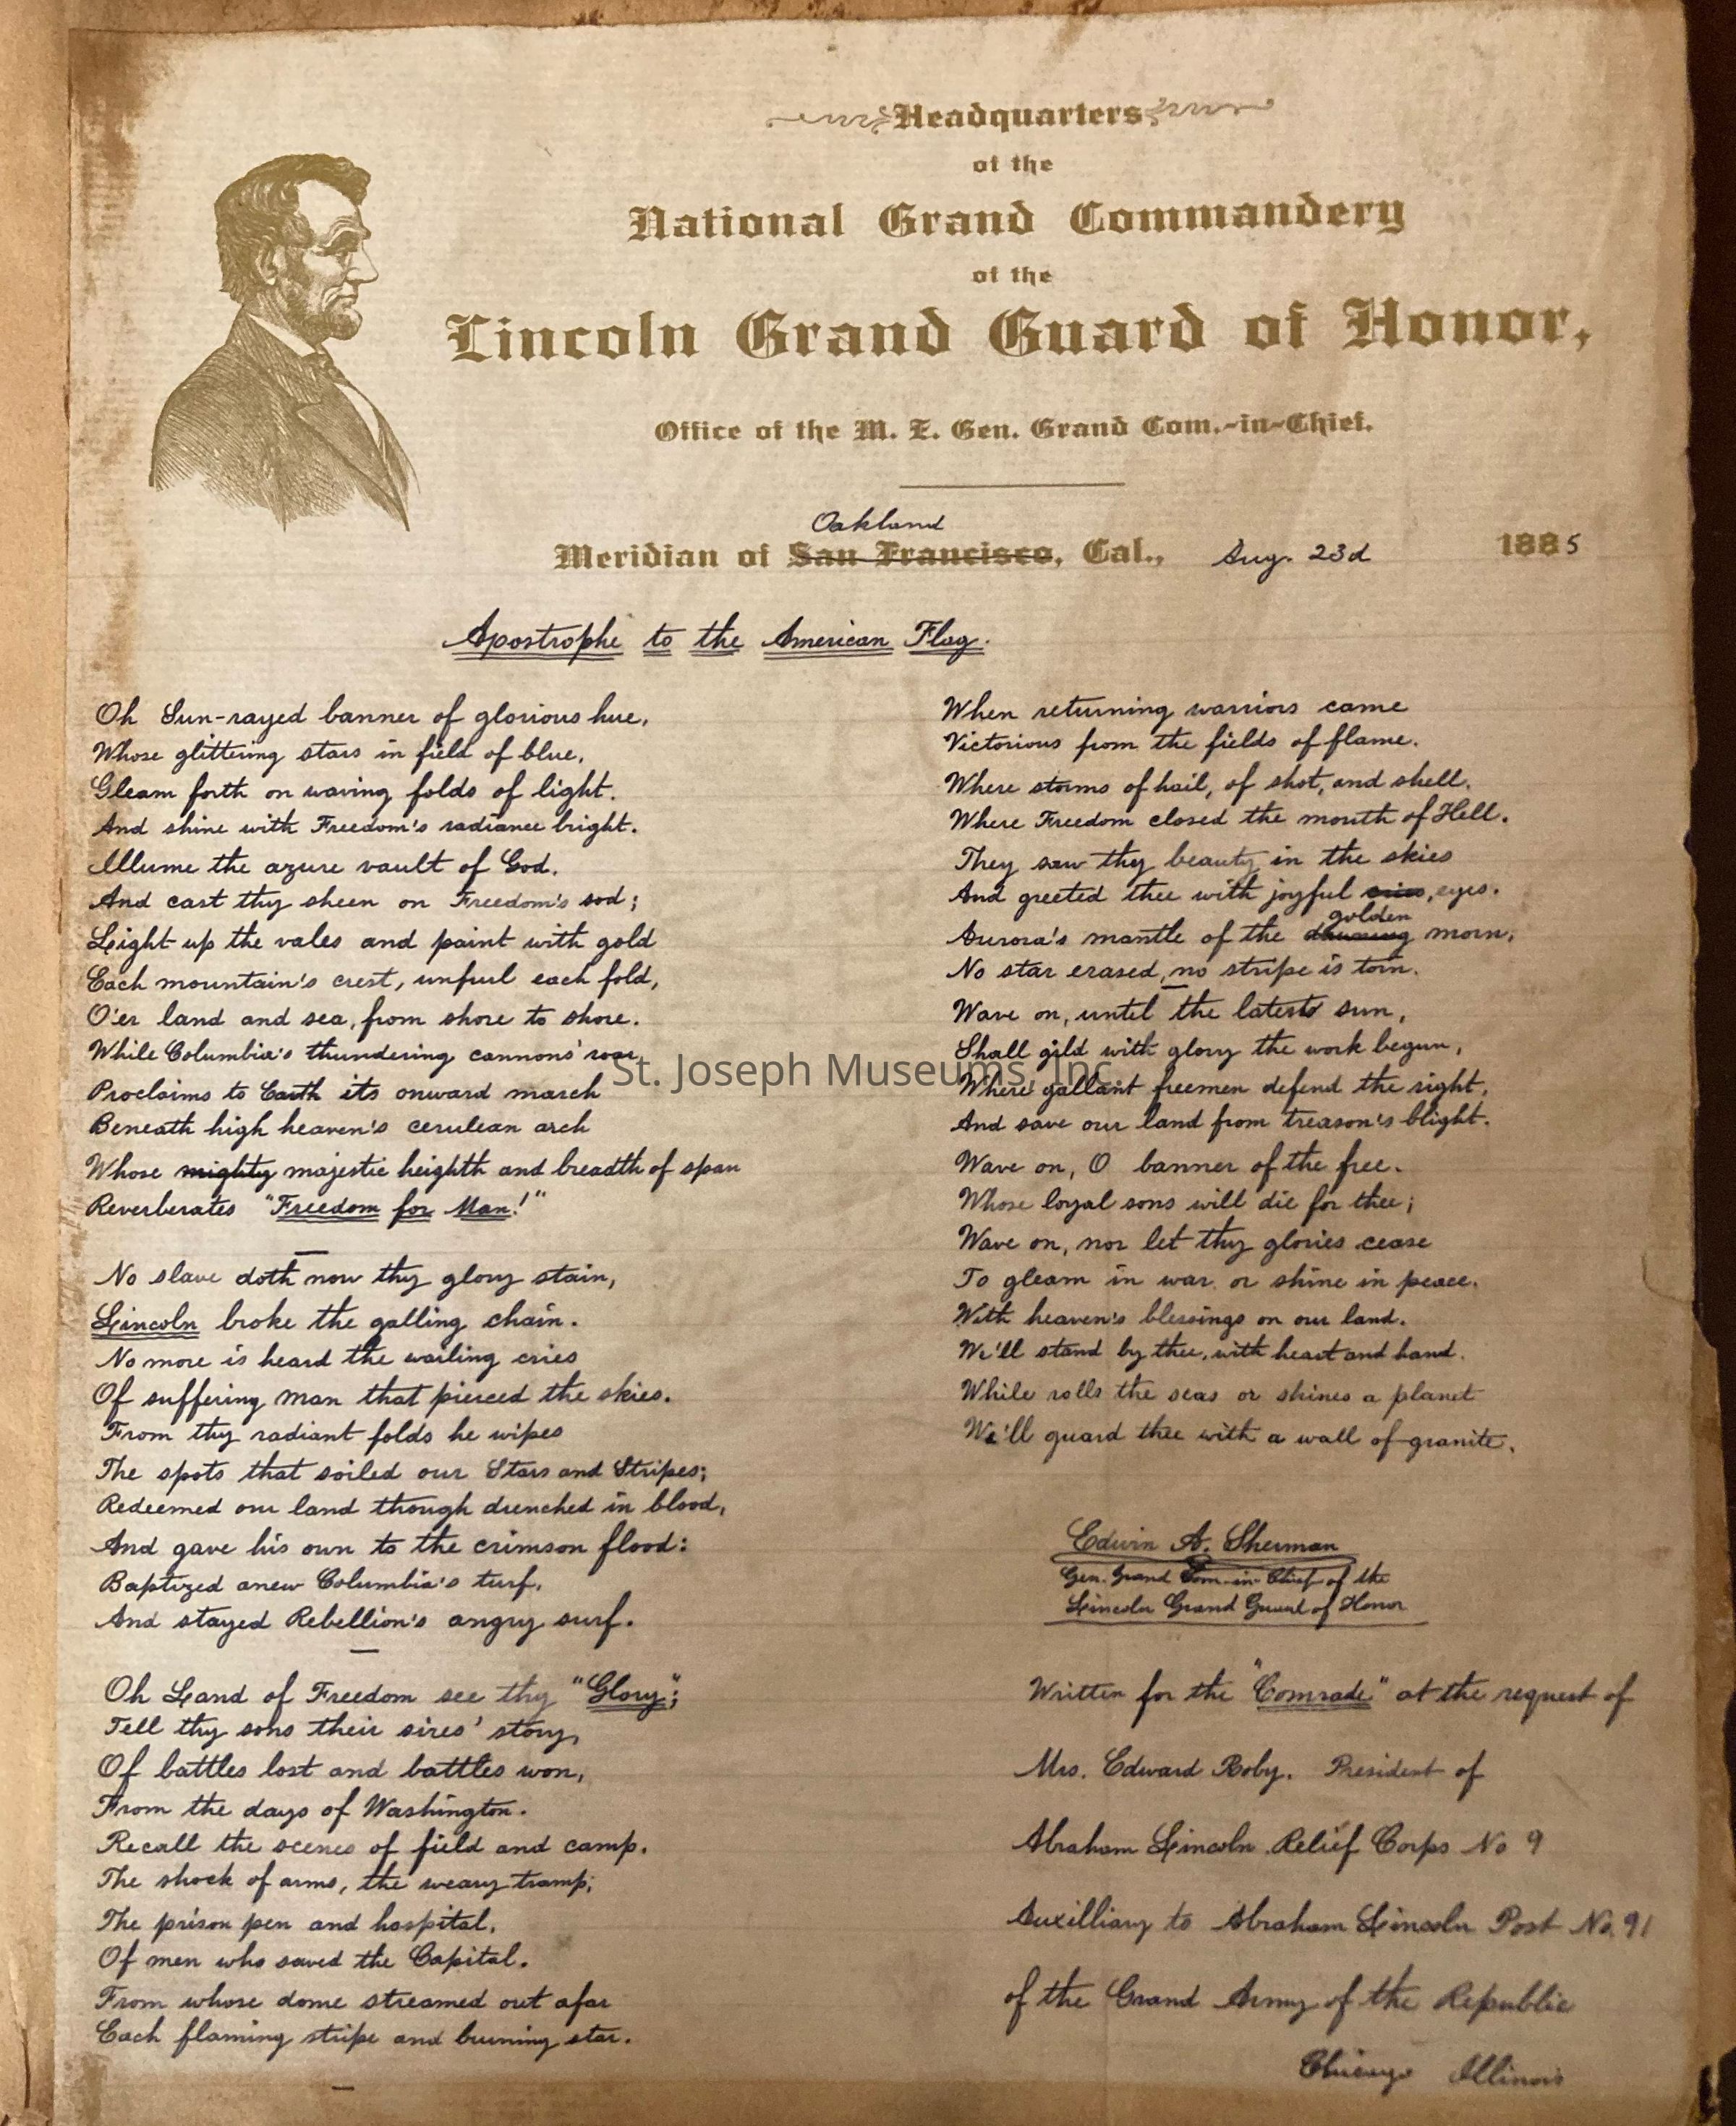 Headquarters
of the
National Grand Commandery
of the
Lincoln Grand Guard of Honor,
Office of the M. E. Gen. Grand Com.-in-Chief.
Oakland
Meridian of San Francisco, Cal., Aug. 23d 1885
Apostrophe to the American Flag.
Oh Sun-rayed banner of glorious hue,
Whose glittering stars in field of blue,
Gleam forth on waving folds of light.
And shine with Freedom's radiance bright.
Illume the azure vault of God.
And cast thy sheen on Freedom's sod;
Light up the vales and paint with gold
Each mountain's crest, unfurl each fold,
O'er land and sea, from shore to shore.
While Columbia's thundering cannons' roar,
Proclaims to Earth its onward march
Beneath high heaven's cerulean arch
Whose mighty majestic heighth and breadth of span
Reverberates "Freedom for Man!"
No slave doth now thy glory stain,
Lincoln broke the galling chain.
No more is heard the wailing cries
Of suffering man that pierced the skies.
From thy radiant folds he wipes
The spots that soiled our Stars and Stripes;
Redeemed our land though drenched in blood,
And gave his own to the crimson flood:
Baptized anew Columbia's turf,
And stayed Rebellion's angry surf.
Oh Land of Freedom see thy "Glory";
Tell thy sons their sires' story,
Of battles lost and battles won,
From the days of Washington.
Recall the scenes of field and camp.
The shock of arms, the weary tramp;
The prison pen and hospital,
Of men who saved the Capital.
From whose dome streamed out afar
Each flaming stripe and burning star.
When returning warriors came
Victorious from the fields of flame.
Where storms of hail, of shot, and shell.
Where Freedom closed the mouth of Hell.
They saw thy beauty in the skies
And greeted thee with joyful cries, eyes.
golden
Aurora's mantle of the dawning morn,
No star erased, no stripe is torn.
Wave on, until the latest sun,
Shall gild with glory the work begun,
Where gallant freemen defend the right,
And save our land from treason's blight.
Wave on, O banner of the free.
Whose loyal sons will die for thee;
Wave on, nor let thy glories cease
To gleam in war or shine in peace.
With heaven's blessings on our land.
We'll stand by thee, with heart and hand.
While rolls the seas or shines a planet
We'll guard thee with a wall of granite.
Edwin A. Sherman
Gen. Grand Com-in-Chief of the
Lincoln Grand Guard of Honor
Written for the "Comrade" at the request of
Mrs. Edward Roby. President of
Abraham Lincoln Relief Corps No 9
Auxilliary to Abraham Lincoln Post No. 91
of the Grand Army of the Republic
Chicago Illinois
St. Joseph Museums, Inc.